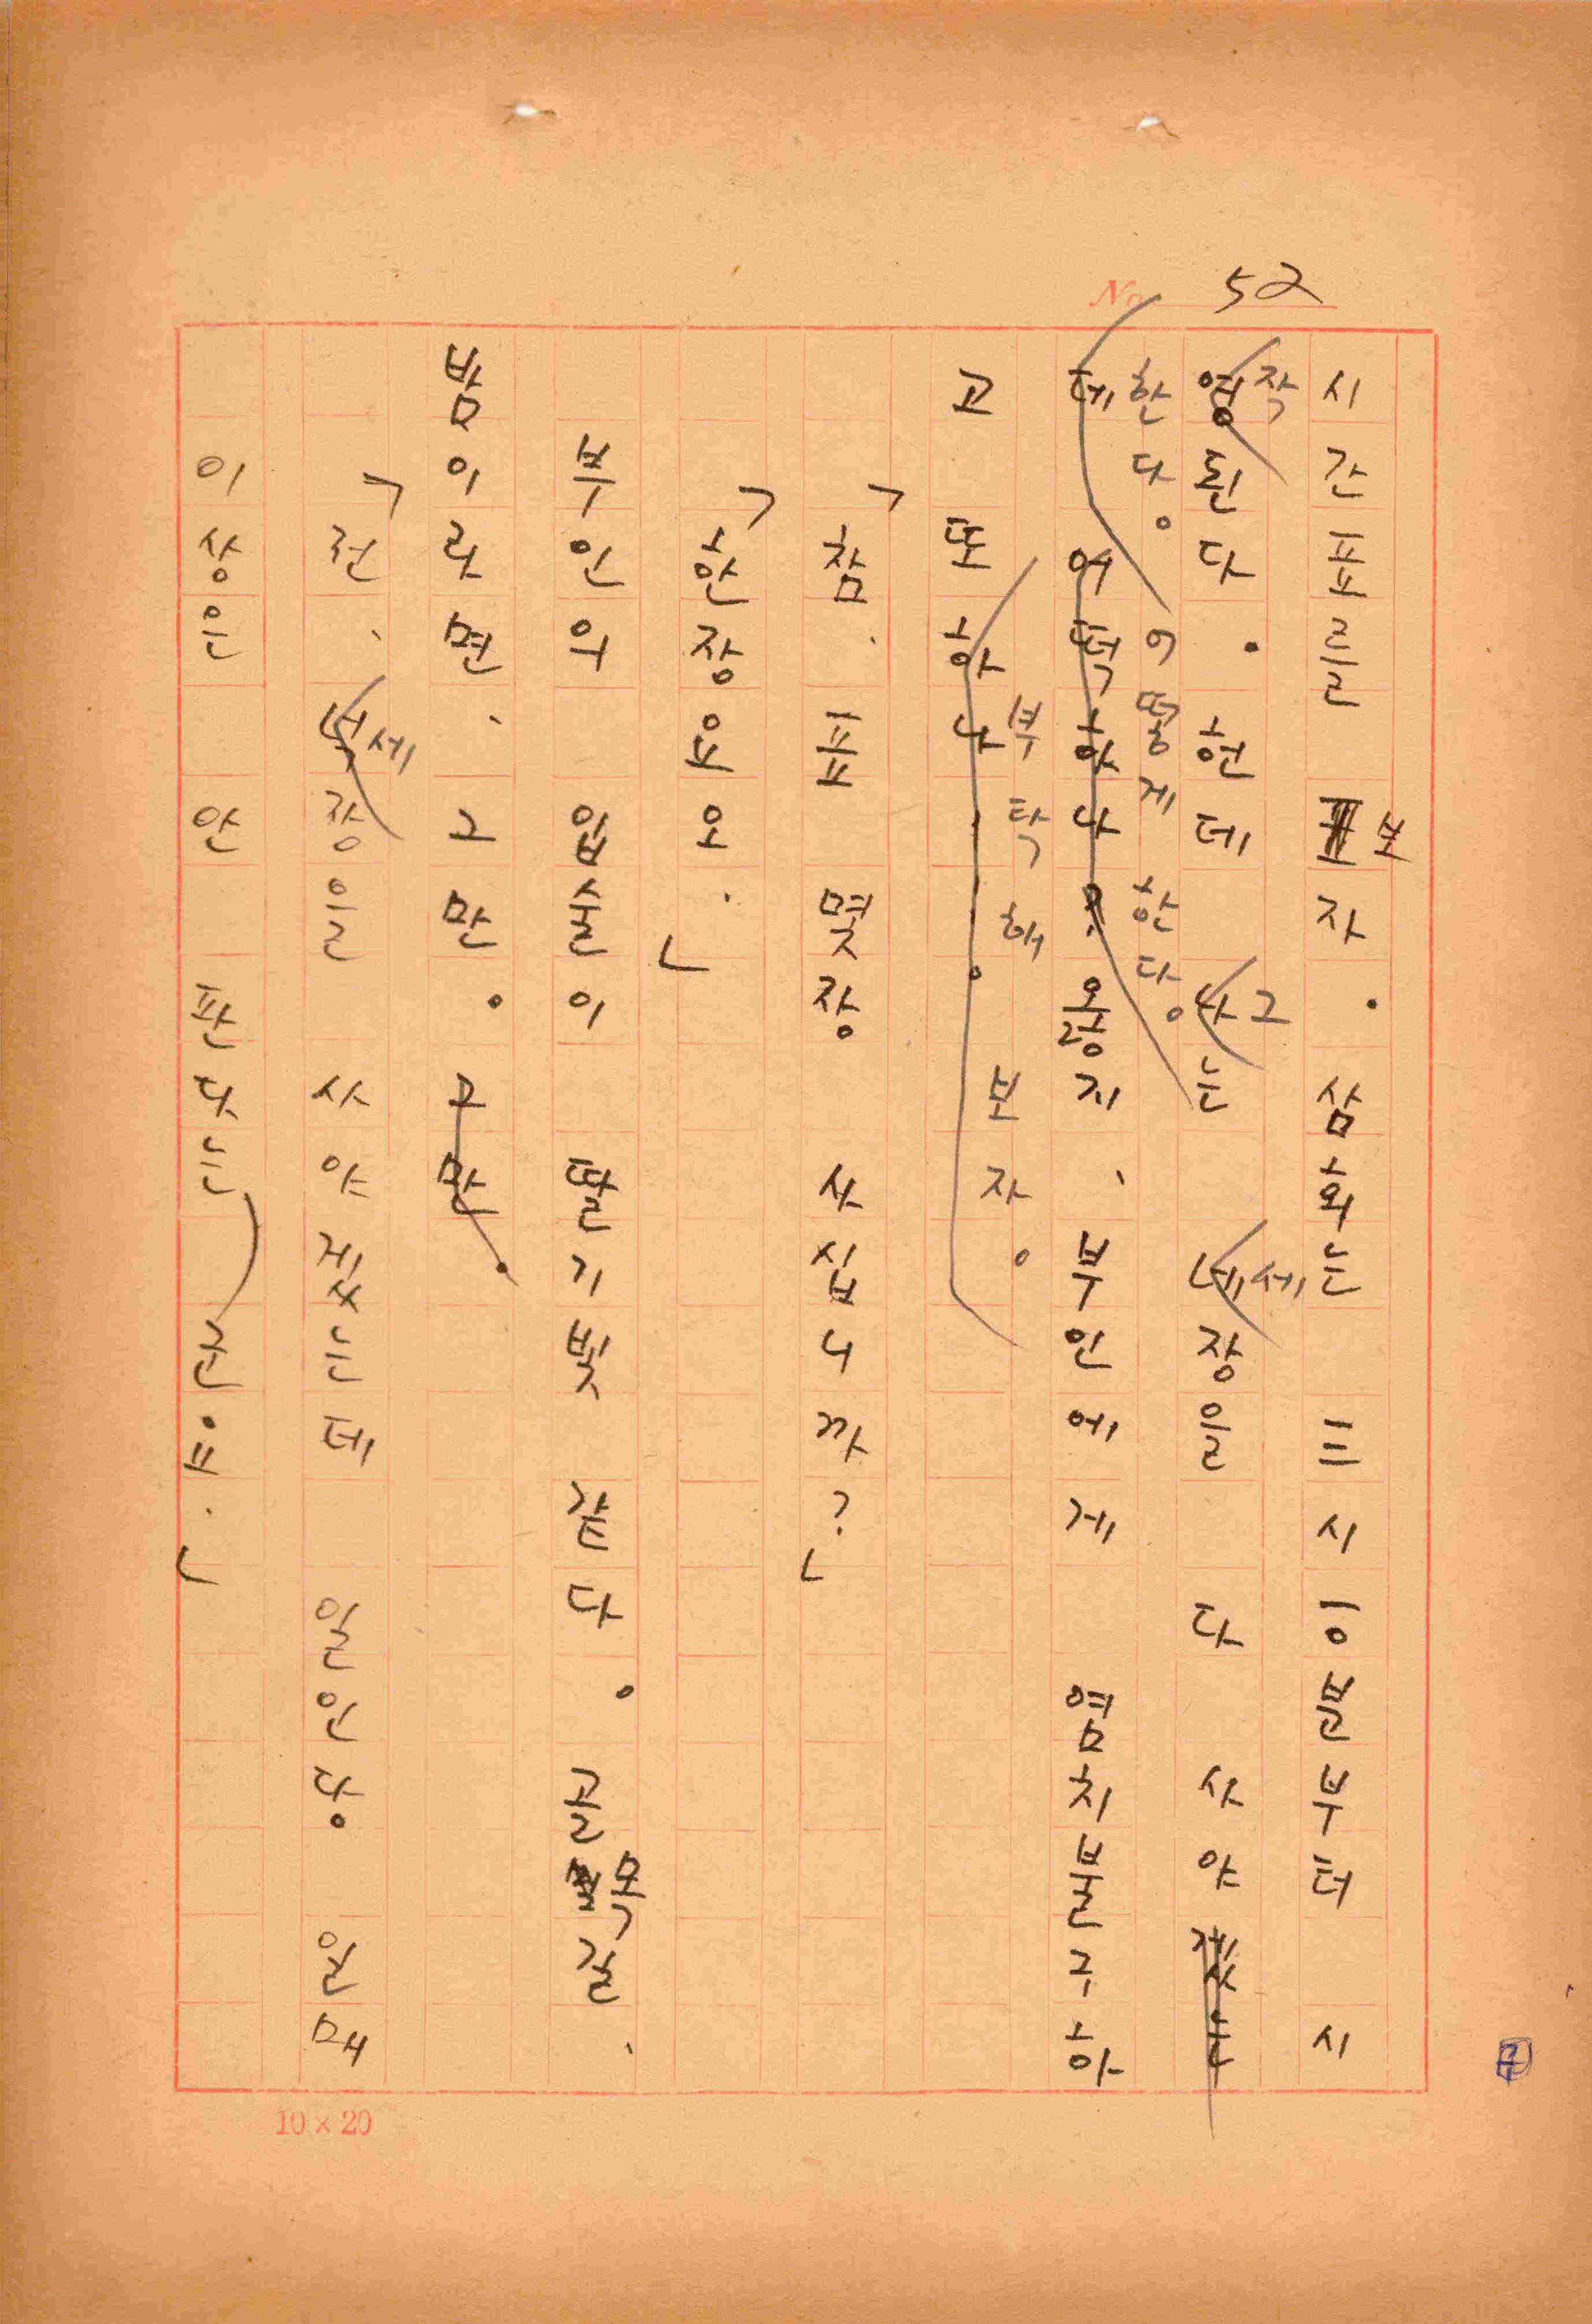 52
시간표를 보자. 삼회는 三시 一0분부터 시
작
영된다. 헌데 나그는 네세장을 다 사야겠는
한다. 어떻게 한다.
데 어떡하나? 옳지, 부인에게 염치불구하
부탁해 보자.
고 또 하나.
「참, 표 몇장 사십니까?」
「한장요오.」
부인의 입술이 딸기빛 같다. 골목길,
밤이라면, 그만. 그만.
「전, 넉세장을 사야겠는데 일인당 원매
이상은 안 판다는군요.」
No.
10×20